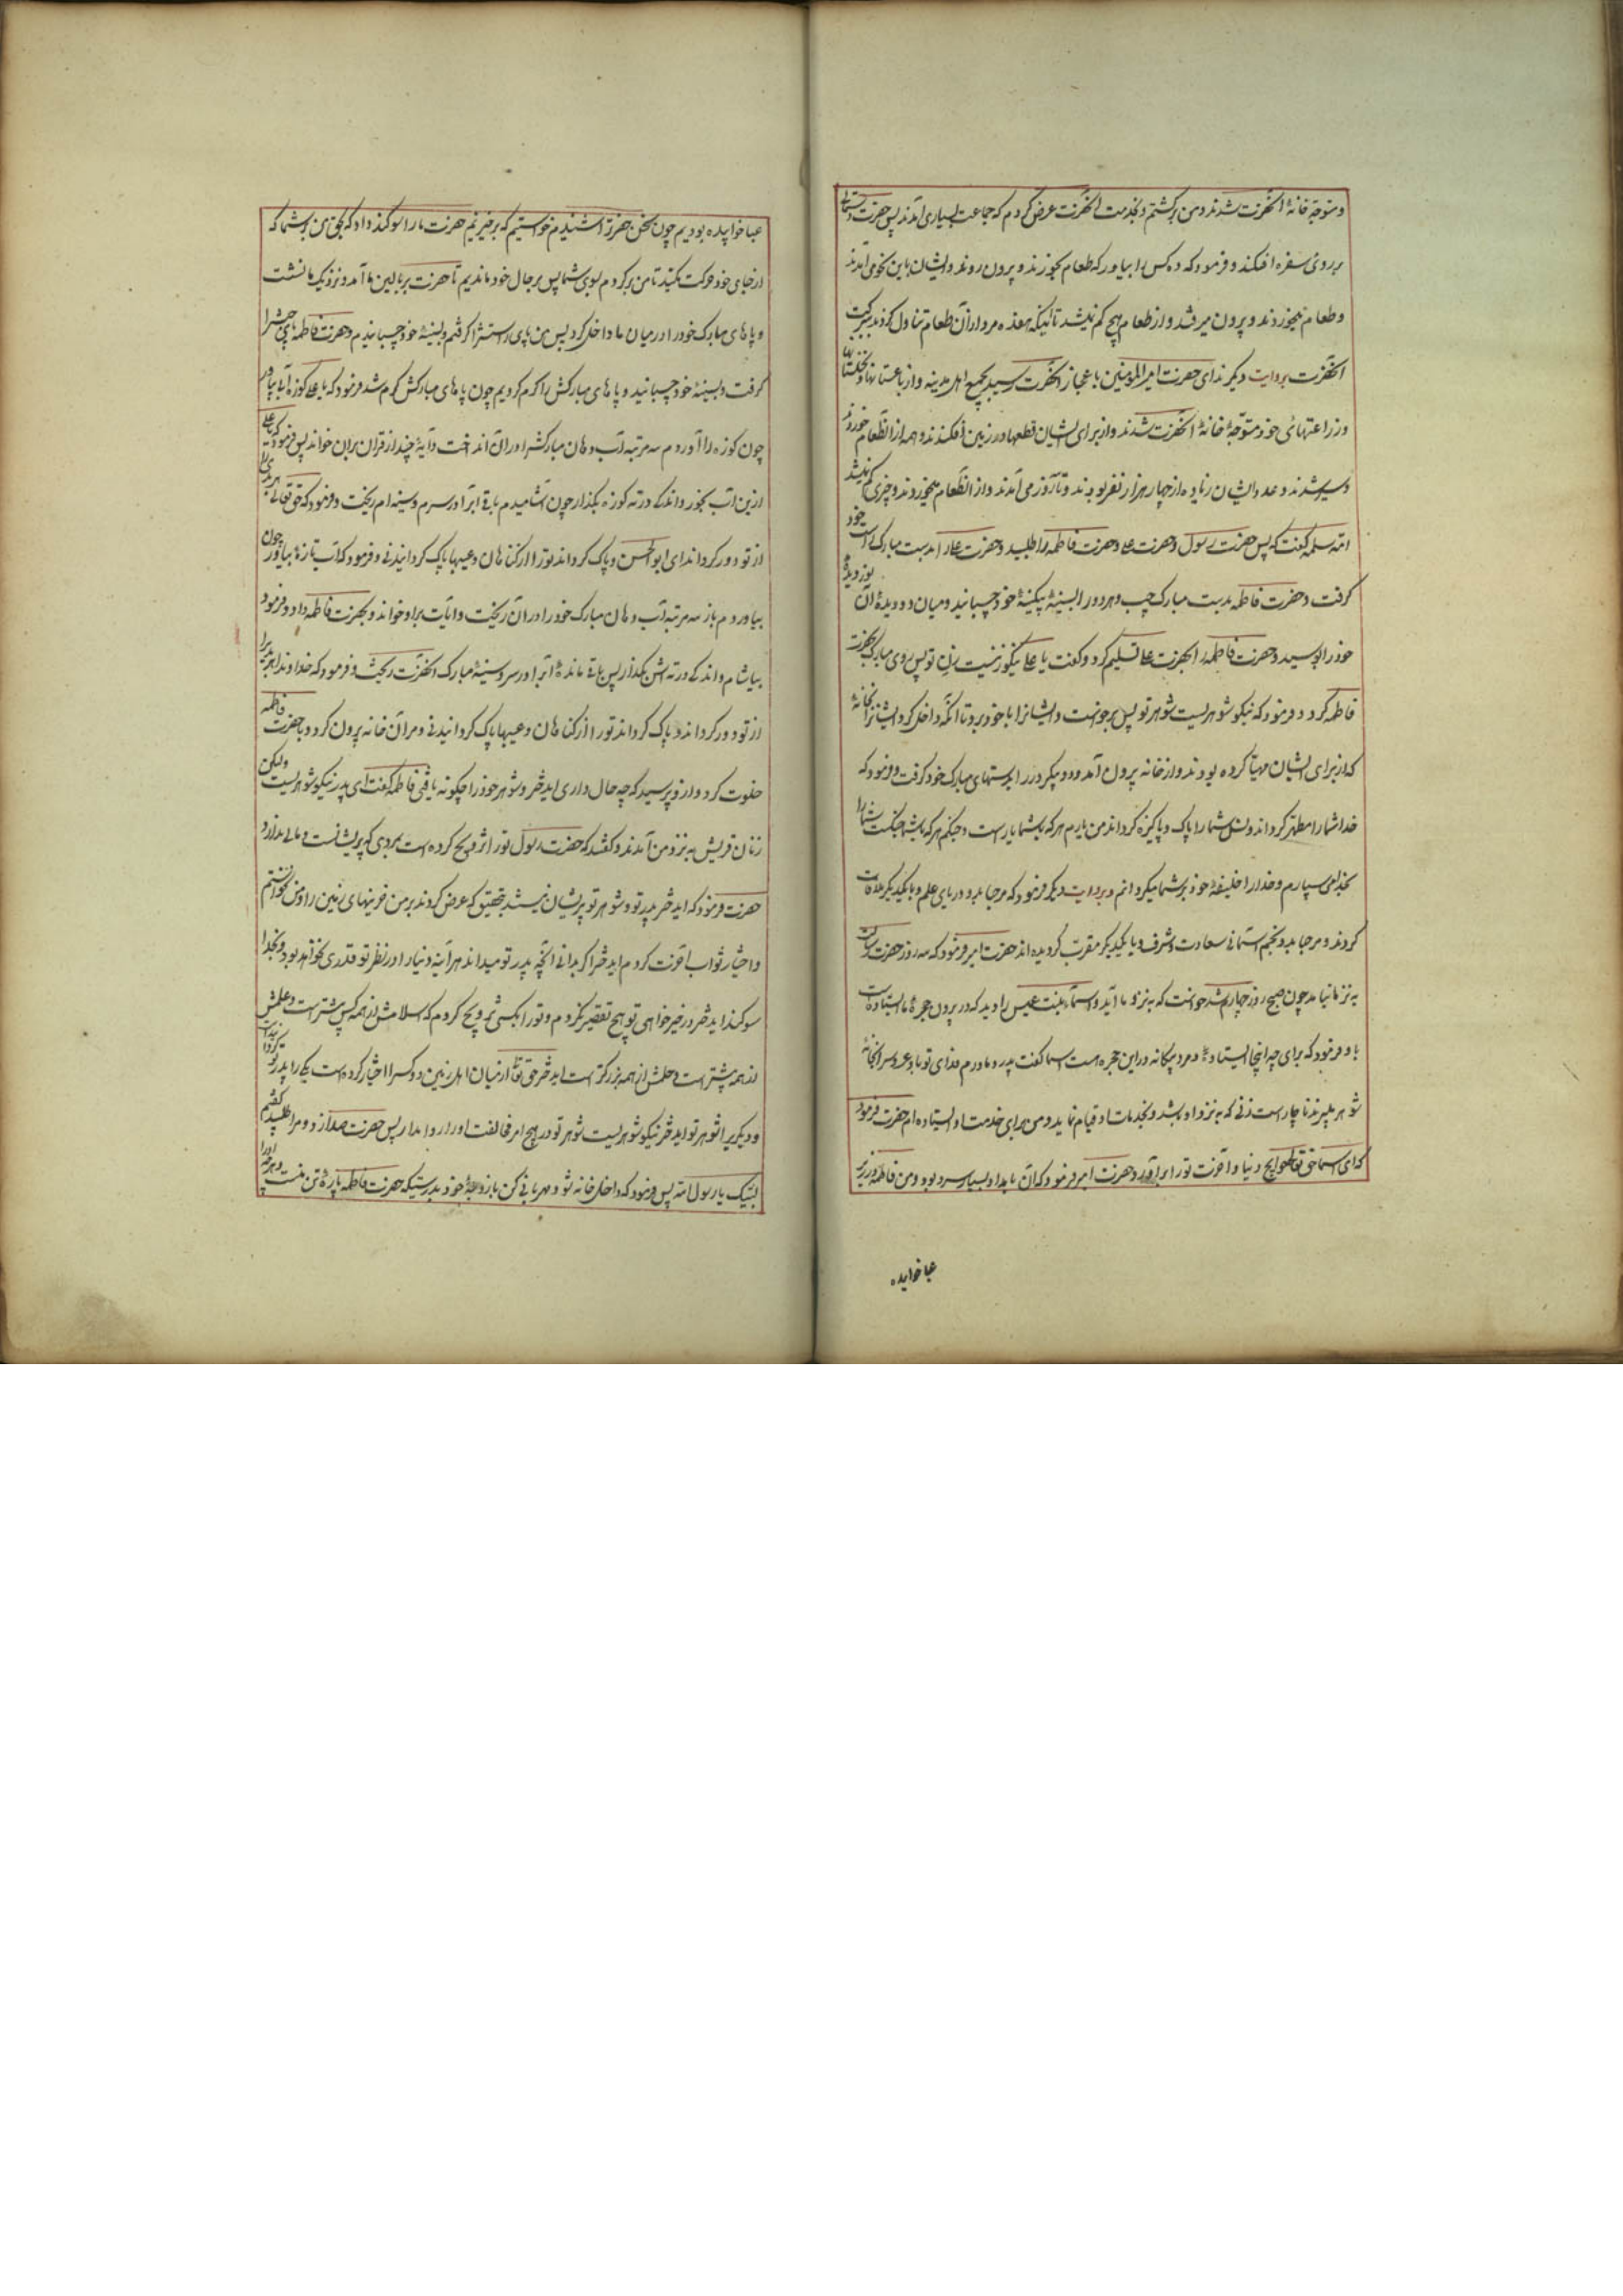 و متوجه خانهٔ آنحضرت شدند و من برگشتم و بخدمت آنحضرت عرض کردم که جماعت بسیاری آمدند پس حضرت دستمالی
بر روی سفره افکند و فرمود که ده کس را بیاور که طعام بخورند و بیرون روند و ایشان باین نحو می آمدند
و طعام میخوردند و بیرون میرفتند و از طعام هیچ کم نمیشد تا آنکه هفتصد مرد از آن طعام تناول کردند ببرکت
آنحضرت بروایت دیگر ندای حضرت امیر المؤمنین باعجاز آنحضرت رسید بجمیع اهل مدینه و از باغستانها و نخلستانها
و زراعتهای خود متوجه خانهٔ آنحضرت شدند و از برای ایشان قطعها در زمین افکندند و همه از آنطعام خوردند
و سیر شدند و عدد ایشان زیاده از چهار هزار نفر بودند و تا سه روز می آمدند و از آنطعام میخوردند و چیزی کم نمیشد
ام سلمه گفت که پس حضرت رسول و حضرت علی و حضرت فاطمه را طلبید و حضرت علی را بدست مبارک راست خود
گرفت و حضرت فاطمه بدست مبارک چپ و هر دو را بسینهٔ بیکینهٔ خود چسبانید و میان دو دیدهٔ آن دو نور دیدهٔ
خود را بوسید و حضرت فاطمه را بحضرت علی تسلیم کرد و گفت یا علی نیکو زنیست زن تو پس روی مبارک بحضرت
فاطمه کرد و فرمود که نیکو شوهریست شوهر تو پس برخواست و ایشانرا با خود برد تا آنکه داخل کرد ایشانرا بخانهٔ
که از برای ایشان مهیا کرده بودند و از خانه بیرون آمد و دو پیکر در را بدستهای مبارک خود گرفت و فرمود که
خدا شما را مطهر گرداند و نسل شما را پاک و پاکیزه گرداند من یارم هر که بشما یار است و جنگم هر که بشما جنگست شما را
بخدا می سپارم و خدا را خلیفهٔ خود بر شما میگردانم و بروایت دیگر فرمود که مرحبا بدو دریای علم و با یکدیگر ملاقات
کردند و مرحبا بدو نجم آسمانی سعادت و شرف و با یکدیگر مقرب گردیده اند حضرت امیر فرمود که سه روز حضرت رسالت
به نزد ما نیامد چون صبح روز چهارم شد خواست که به نزد ما آید و اسماء بنت عمیس را دید که در بیرون حجرهٔ ما ایستاده است
باو فرمود که برای چه اینجا ایستادهٔ و مرد بیگانه در این حجره است اسما گفت پدر و مادرم فدای تو باد عروس را بخانهٔ
شوهر میبرند ناچار است زنی که به نزد او باشد و بخدمات او قیام نماید و من برای خدمت او ایستاده ام حضرت فرمود
که ای اسما حق تعالی حوایج دنیا و آخرت تو را برآورد و حضرت امیر فرمود که آن بامداد بسیار سرد بود و من فاطمه در زیر
عبا خوابیده
عبا خوابیده بودیم چون سخن حضرت را شنیدیم خواستیم که برخیزیم حضرت ما را سوگند داد که بحق من بر شما که
از جای خود حرکت مکنید تا من برگردم بسوی شما پس برحال خود ماندیم تا حضرت بر بالین ما آمد و نزدیک ما نشست
و پاهای مبارک خود را در میان ما داخل کرد پس من پای راستش را گرفتم و بسینهٔ خود چسبانیدم و حضرت فاطمه پای چپش را
گرفت و بسینهٔ خود چسبانید و پاهای مبارکش را گرم کردیم چون پاهای مبارکش گرم شد فرمود که یا علی کوزه آبی بیاور
چون کوزه را آوردم سه مرتبه آب دهان مبارکش را در آن انداخت و آیهٔ چند از قران بر آن خواند پس فرمود که یا علی
از این آب بخور و اندکی در ته کوزه بگذار چون آشامیدم باقی آب را در سرم و سینه ام ریخت و فرمود که حق تعالی هر بدی را
از تو دور گرداند ای ابو الحسن و پاک گرداند تو را از گناهان و عیبها پاک گردانیدنی و فرمود که آب تازهٔ بیاور چون
بیاوردم باز سه مرتبه آب دهان مبارک خود را در آن ریخت و آیات بر او خواند و بحضرت فاطمه داد و فرمود
بیاشام و اندکی در ته اش بگذار پس باقی ماندهٔ آب را در سر و سینهٔ مبارک آنحضرت ریخت و فرمود که خداوند هر بدی را
از تو دور گرداند و پاک گرداند تو را از گناهان و عیبها پاک گردانیدنی و مرا از خانه بیرون کرد و با حضرت فاطمه
خلوت کرد و از و پرسید که چه حال داری ایدختر و شوهر خود را چگونه یافتی فاطمه گفت ای پدر نیکو شوهریست ولیکن
زنان قریش به نزد من آمدند و گفتند که حضرت رسول تو را تزویج کرده است بمردی که پریشانست و مالی ندارد
حضرت فرمود که ایدختر پدر تو و شوهر تو پریشان نیستند بتحقیق که عرض کردند بر من خزینهای زمین را و من نخواستم
و اختیار ثواب آخرت کردم ایدختر اگر بدانی آنچه پدر تو میداند هر آینه دنیا را در نظر تو قدری نخواهد بود و بخدا
سوگند ایدختر در خیر خواهی تو هیچ تقصیر نکردم و تو را بکسی تزویج کردم که اسلامش از همه کس پیشتر است و علمش
از همه بیشتر است و حلمش از همه بزرگتر است ایدختر حق تعالی از میان اهل زمین دو کس را اختیار کرده است یکی را پدر تو گردانیده
و دیگری را شوهر تو ایدختر نیکو شوهریست شوهر تو در هیچ امر مخالفت او را روا مدار پس حضرت صدا زد و مرا طلبید گفتم
لبیک یا رسول الله پس فرمود که داخل خانه شو و مهربانی کن با زوجهٔ خود بدرستیکه حضرت فاطمه پارهٔ تن منست و هر چه او را